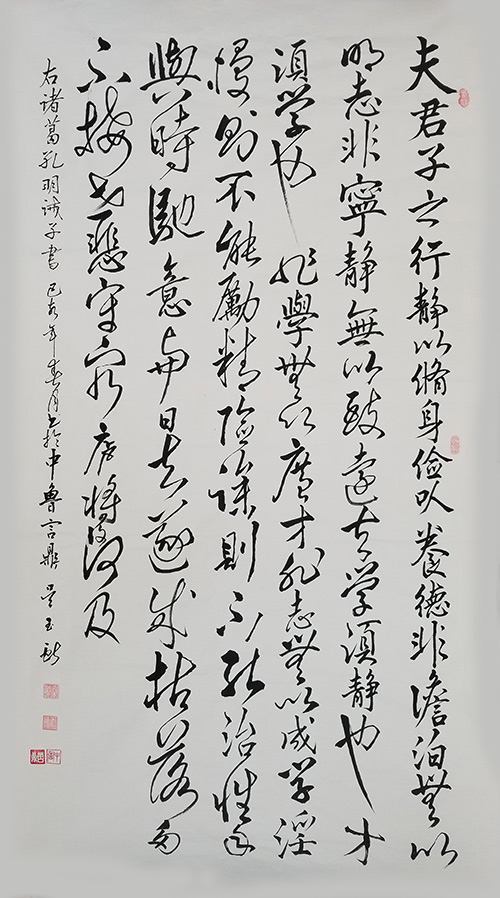 夫君子之行静以脩身俭以養德非澹泊無以
明志非寧静無以致遠夫学須静也才
須学也非學無以廣才非志無以成学淫
慢則不能勵精險躁則不能治性年
與時馳意与日去遂成枯落多
不接世悲守窮廬將復何及
右诸葛孔明诫子書己亥年春月书於中魯言鼎